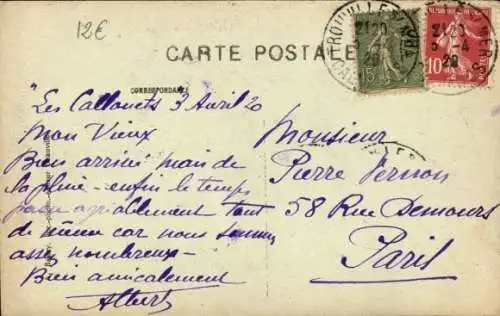 12€
CARTE POSTALE
TROUVILLE
21 20
5 -4
20
15
21 20
5 -4
20
10
CORRESPONDANCE
Les Callouets 3 Avril 20
Mon Vieux
Bien arrivé mais de
la pluie - enfin le temps
passe agréablement tout
de même car nous sommes
assez nombreux -
Bien amicalement
Albert
Monsieur
Pierre Vernon
58 Rue Demours
Paris